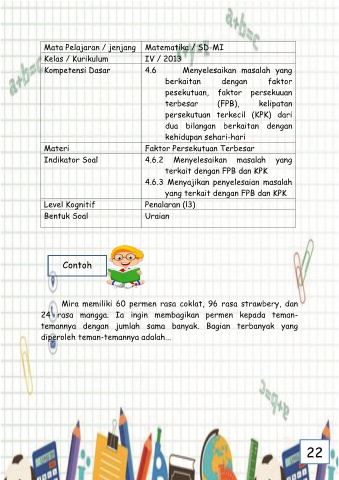 Mata Pelajaran / jenjang Matematika / SD-MI
Kelas / Kurikulum IV / 2013
Kompetensi Dasar 4.6 Menyelesaikan masalah yang
berkaitan dengan faktor
pesekutuan, faktor persekuuan
terbesar (FPB), kelipatan
persekutuan terkecil (KPK) dari
dua bilangan berkaitan dengan
kehidupan sehari-hari
Materi Faktor Persekutuan Terbesar
Indikator Soal 4.6.2 Menyelesaikan masalah yang
terkait dengan FPB dan KPK
4.6.3 Menyajikan penyelesaian masalah
yang terkait dengan FPB dan KPK
Level Kognitif Penalaran (l3)
Bentuk Soal Uraian
Contoh
Mira memiliki 60 permen rasa coklat, 96 rasa strawbery, dan
24 rasa mangga. Ia ingin membagikan permen kepada teman-
temannya dengan jumlah sama banyak. Bagian terbanyak yang
diperoleh teman-temannya adalah...
22
a+b=c
a+b=c
a+b=c